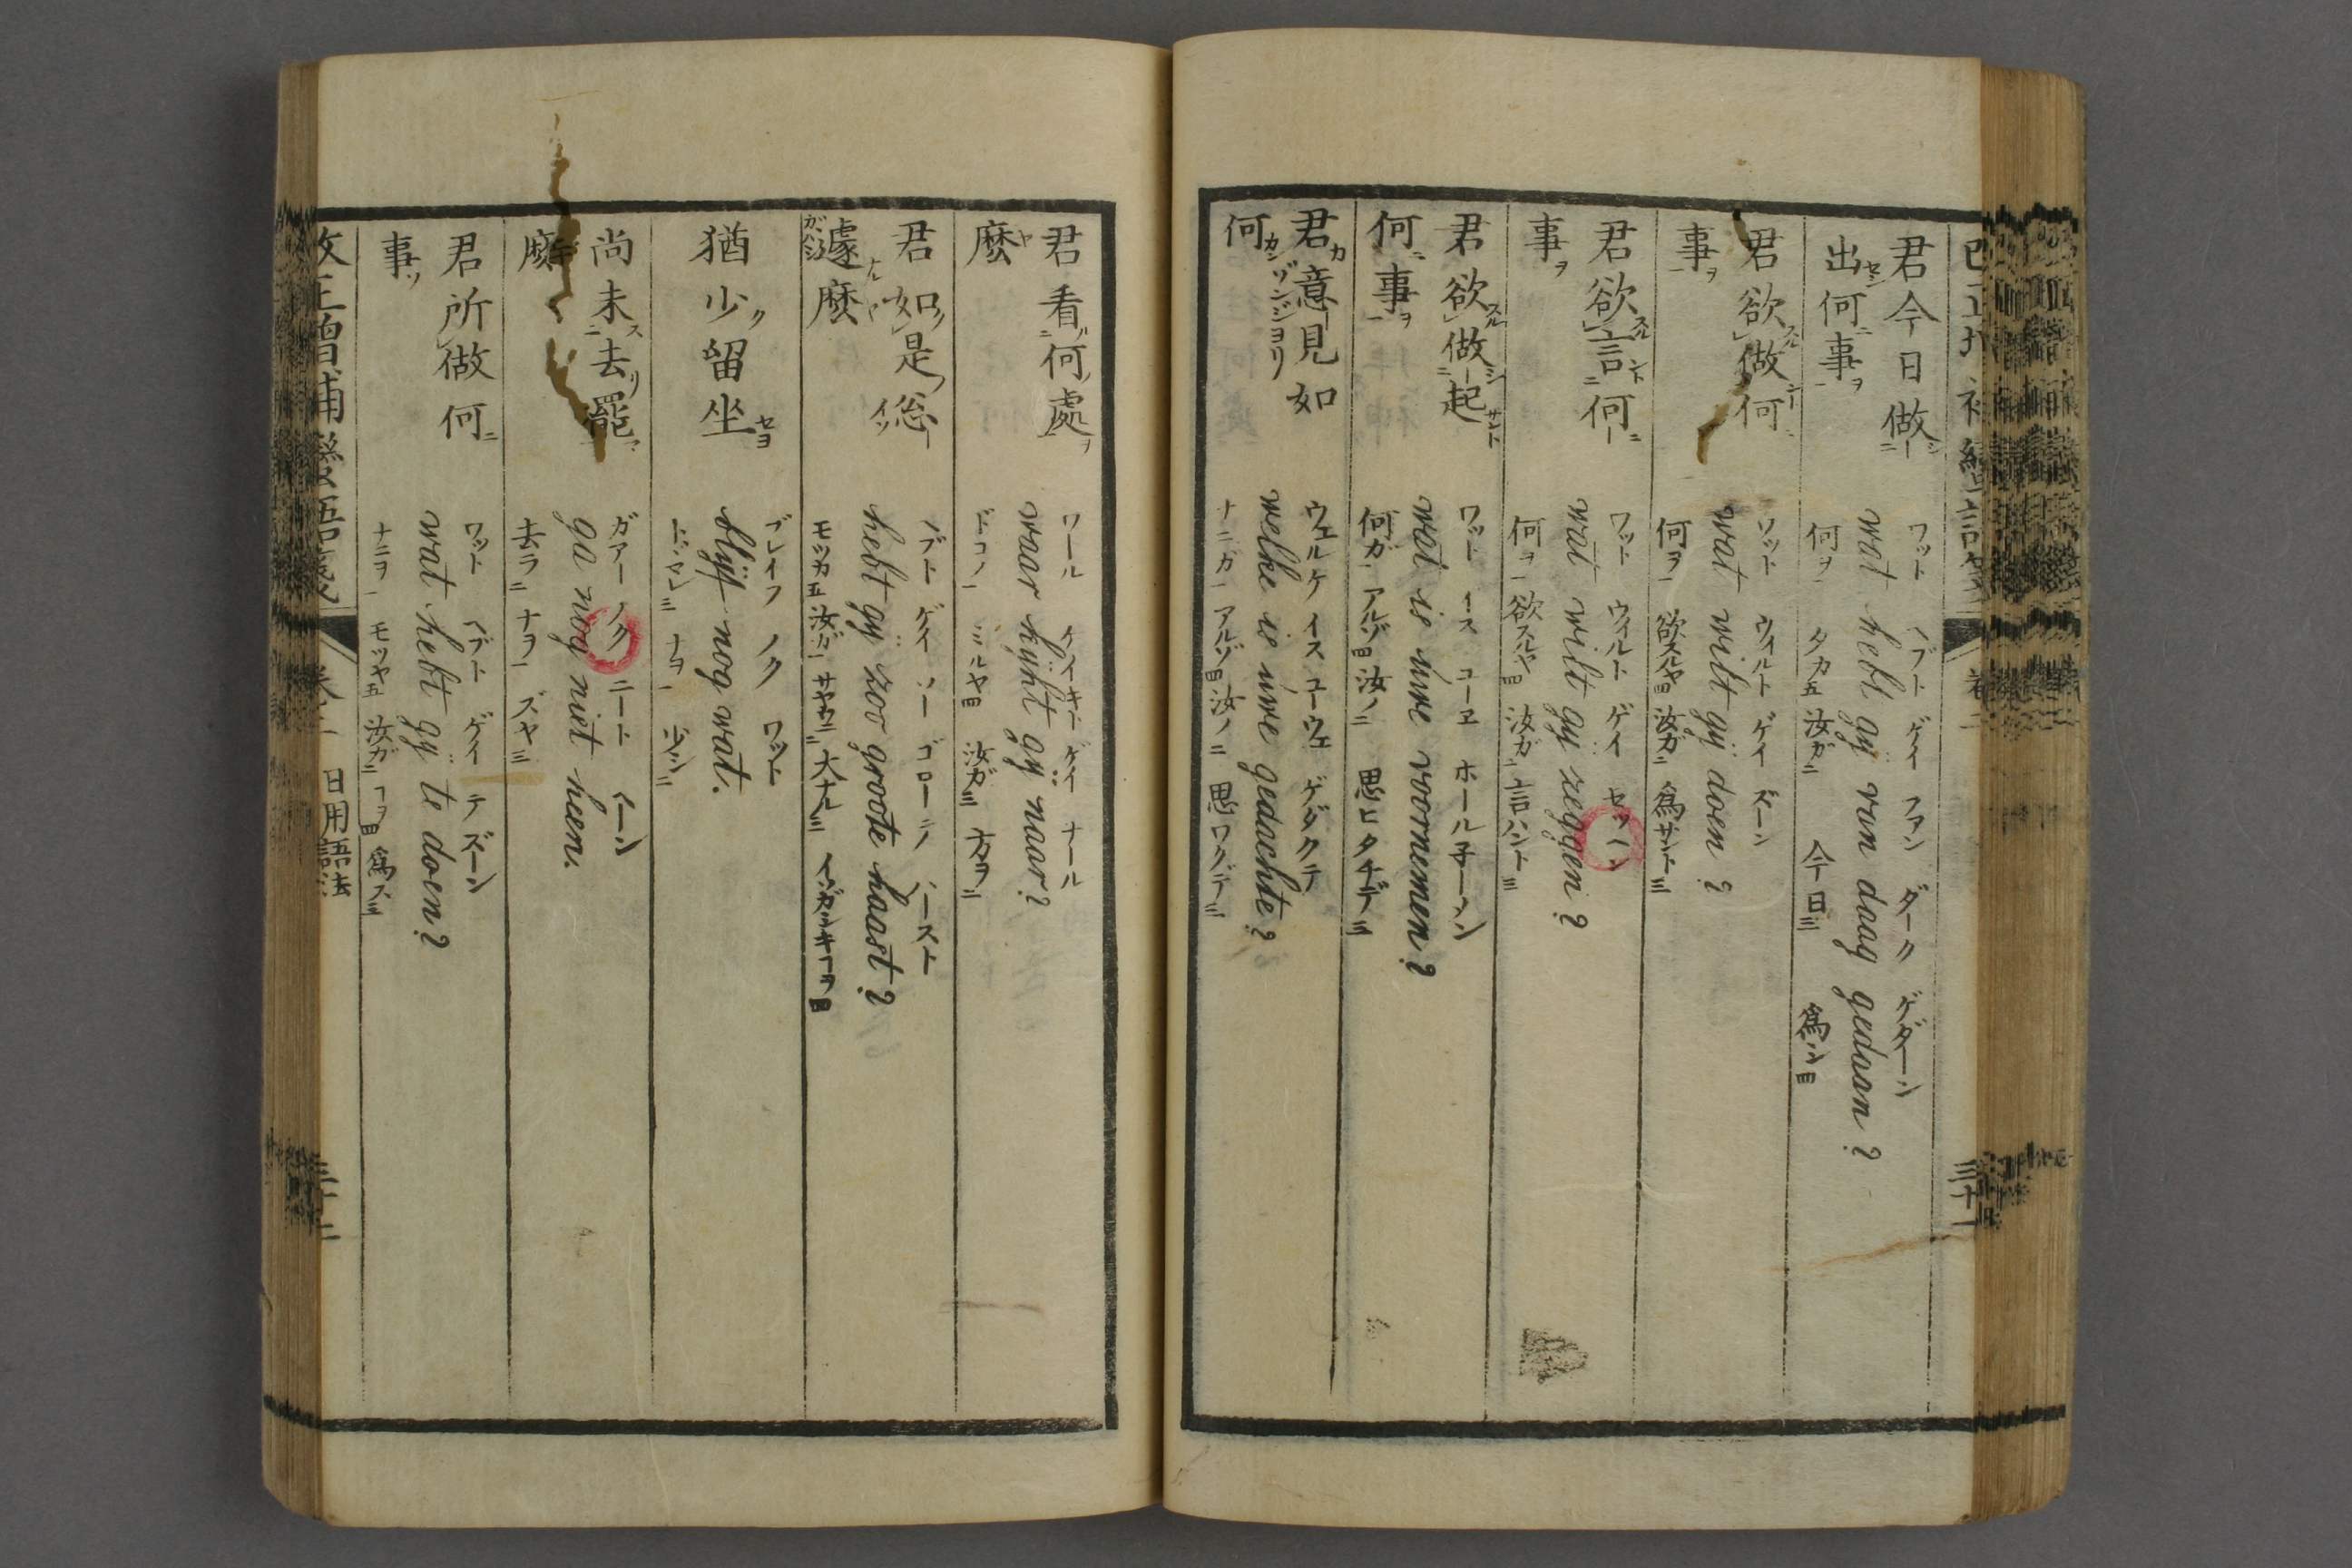 君今日做
出何事
ワット ヘブト ゲイ ファン ダーク ゲダーン
wat hebt gÿ van daag gedaan?
何ヲ一 タカ五 汝ガ二 今日三 爲シ四
君欲做何
事
ワット ウィルト ゲイ ズーン
wat wilt gÿ doen?
何ヲ一 欲スルヤ四 汝ガ二 爲サント三
君欲言何
事
ワット ウィルト ゲイ セッヘン
wat wilt gÿ zeggen?
何ヲ一 欲スルヤ四 汝ガ二 言ハント三
君欲做起
何事
ワット イス ユーヱ ホール子ーメン
wat is uwe voornemen?
何ガ一 アルゾ四 汝ノ二 思ヒタチデ三
君意見如
何
ウェルケ イス ユーウェ ゲダクテ
welke is uwe gedachte?
ナニガ一 アルゾ四 汝ノ二 思ワクデ三
三十一
君看何處
麽
ワール ケイキト ゲイ ナール
waar kÿkt gÿ naar?
ドコノ一 ミルヤ四 汝ガ三 方ヲ二
君如是怱
遽麽
ヘブト ゲイ ソー ゴローテ ハースト
hebt gÿ zoo groote haast?
モツカ五 汝ガ一 サヤウニ二 大ナル三 イソガシキヿヲ四
猶少留坐
ブレイフ ノク ワット
blÿf nog wat.
トドマレ三 ナヲ一 少シ二
尚未去罷
麽
ガアー ノク ニート ヘーン
ga nog niet heen.
去ラ二 ナヲ一 ズヤ三
君所做何
事
ワット ヘブト ゲイ テ ズーン
wat hebt gÿ te doen?
ナニヲ一 モツヤ五 汝ガ二 ヿヲ四 爲ス三
改正増補蠻語箋 卷二 日用語法